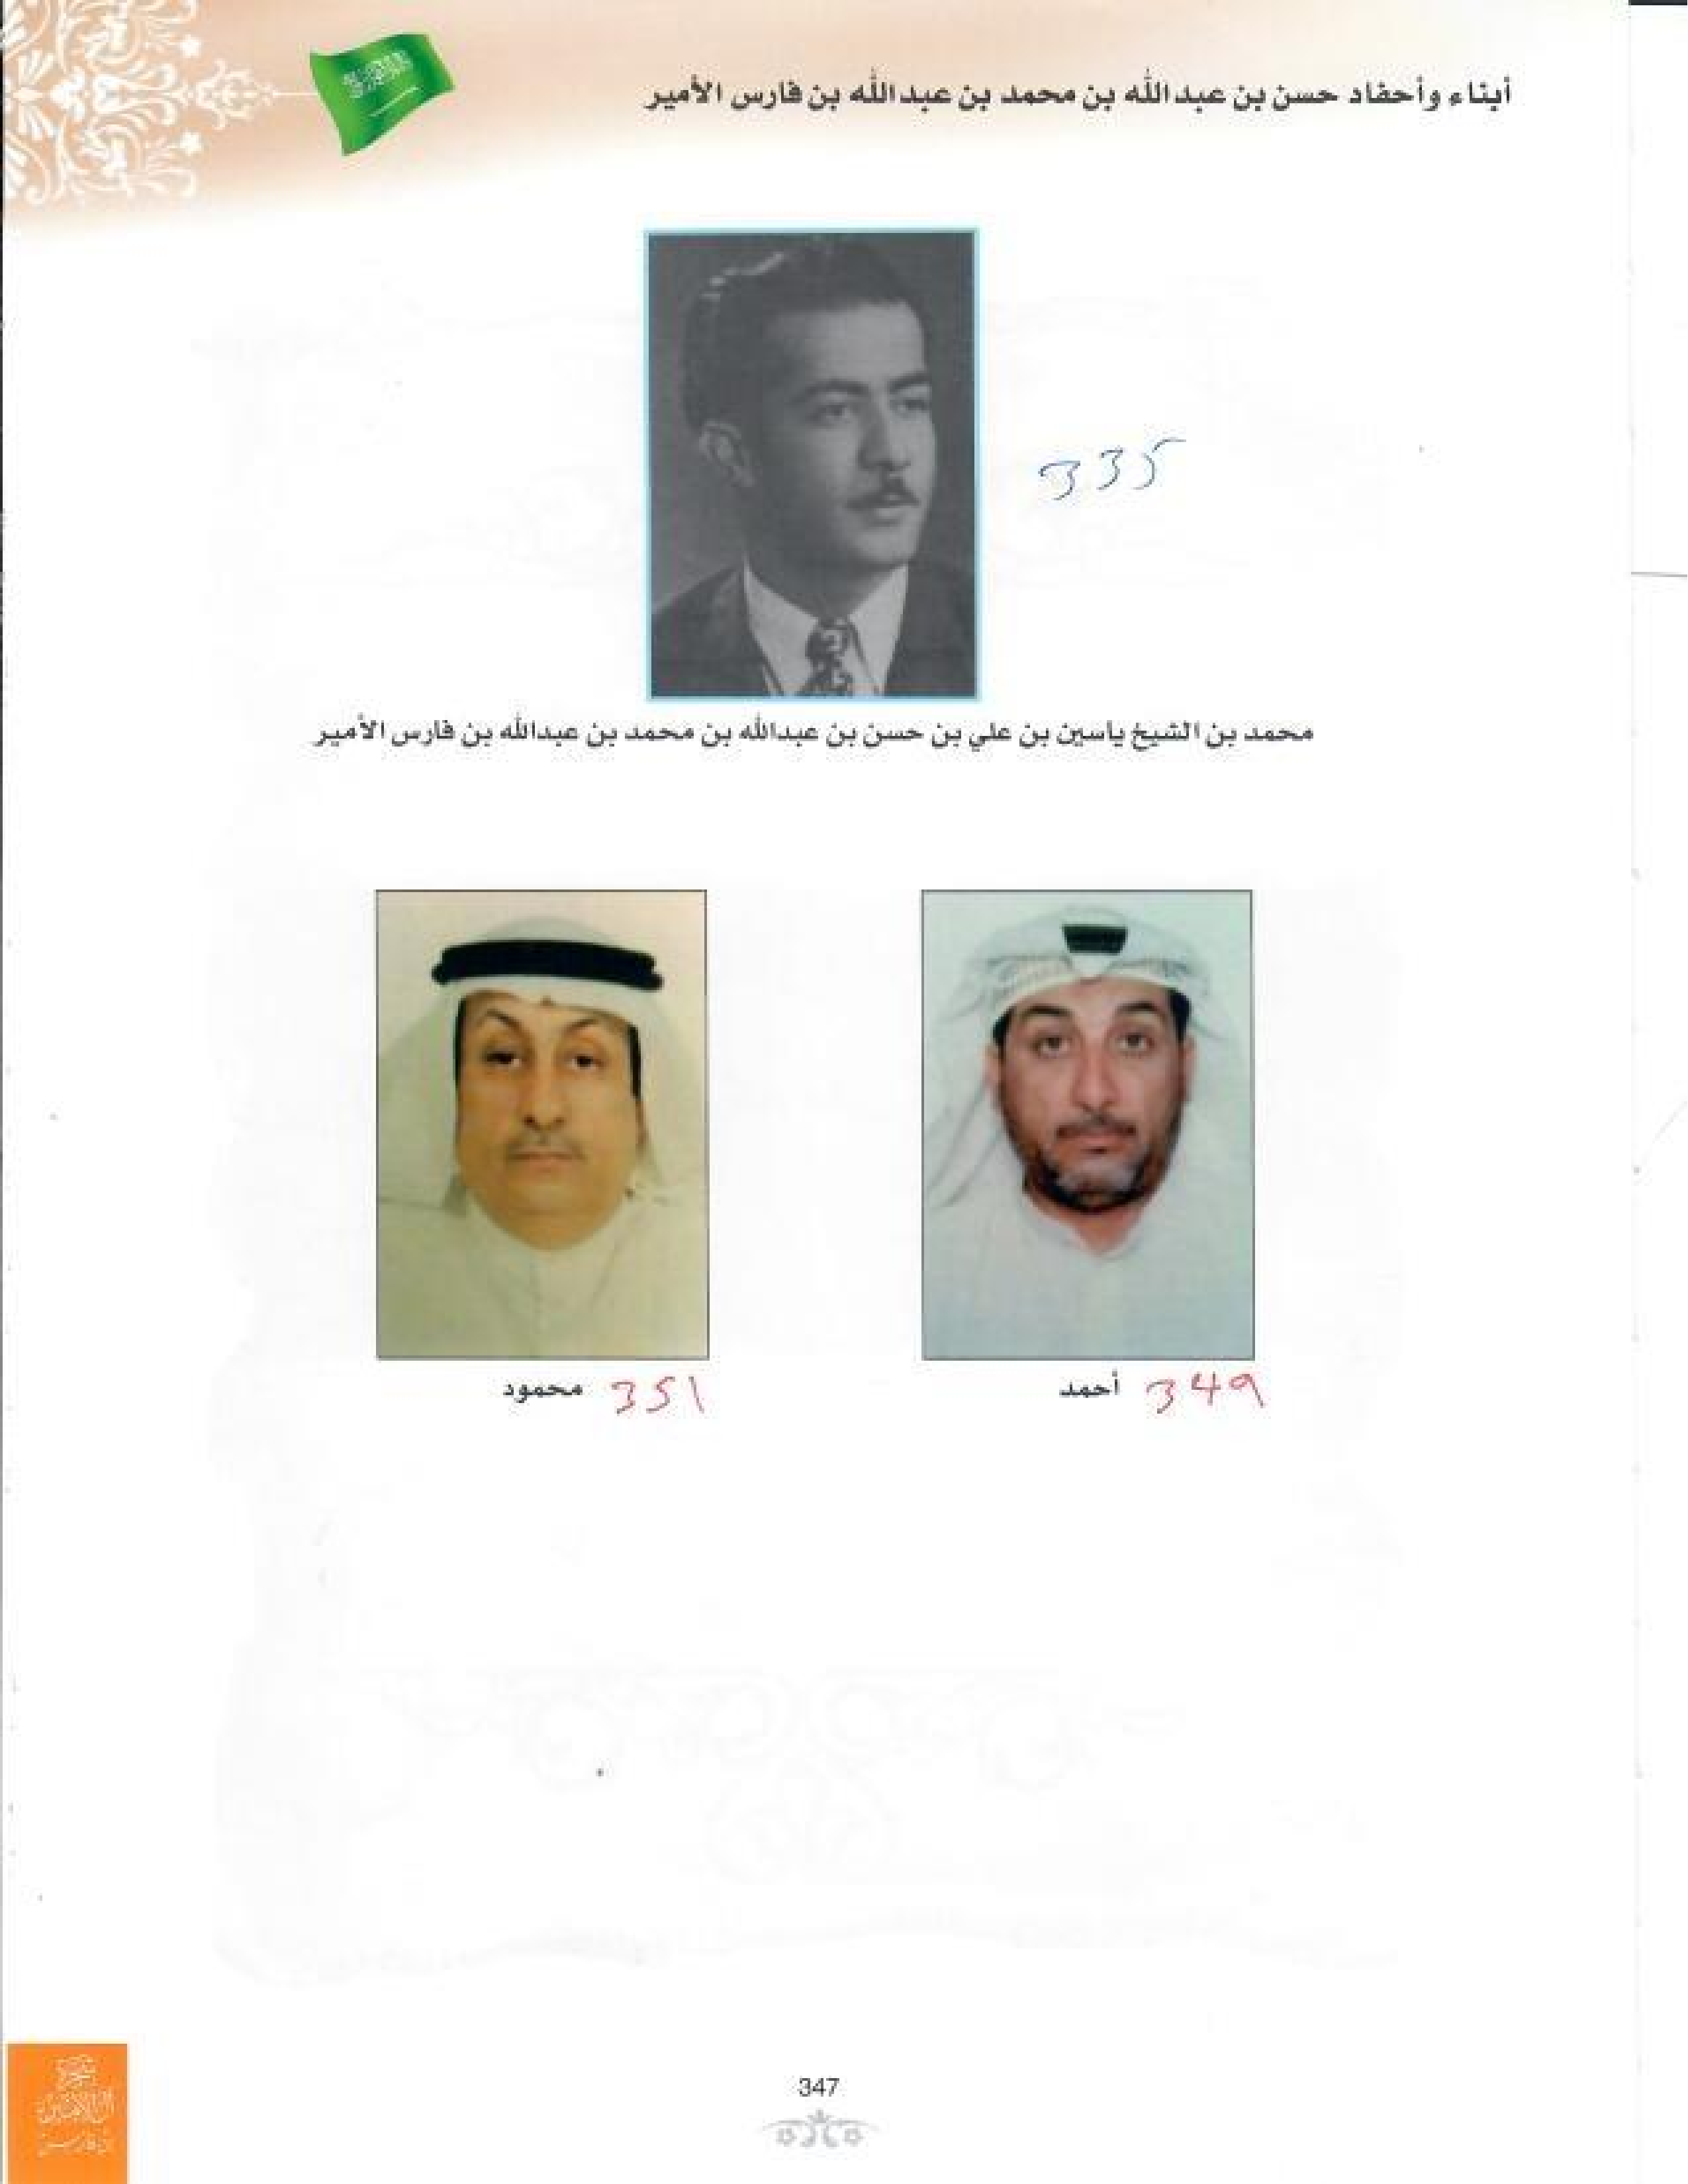 أبناء وأحفاد حسن بن عبدالله بن محمد بن عبدالله بن فارس الأمير
335
محمد بن الشيخ ياسين بن علي بن حسن بن عبدالله بن محمد بن عبدالله بن فارس الأمير
349 أحمد
351 محمود
347